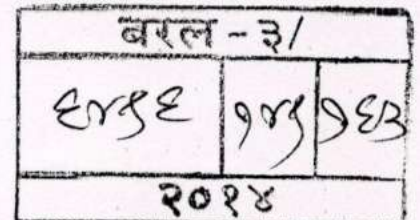 बरल - ३/
६४५६ १४५ १६३
२०१४